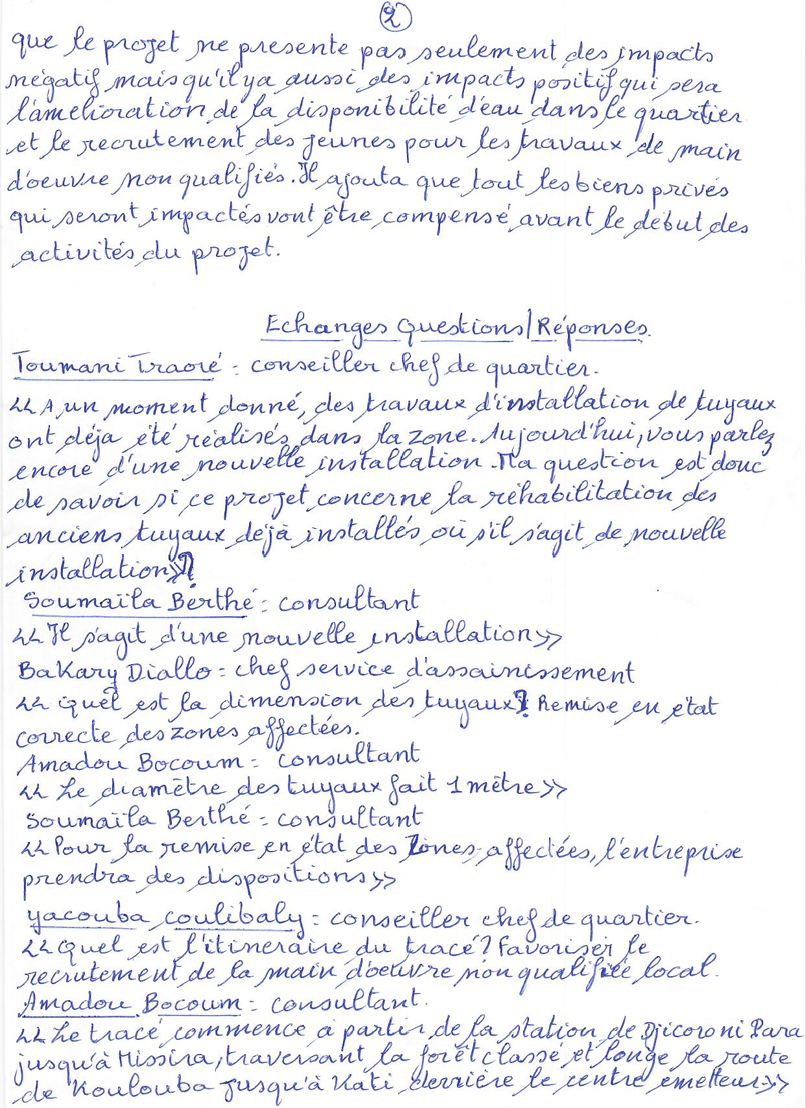 2
que le projet ne presente pas seulement des impacts
négatif mais qu'il ya aussi des impacts positif qui sera
l'amelioration de la disponibilité d'eau dans le quartier
et le recrutement des jeunes pour les travaux de main
d'oeuvre non qualifiés. Il ajouta que tout les biens privés
qui seront impactés vont être compensé avant le début des
activités du projet.
Echanges Questions/Réponses.
Toumani Traoré : conseiller chef de quartier.
<< A un moment donné, des travaux d'installation de tuyaux
ont déjà été réalisés dans la zone. Aujourd'hui, vous parlez
encore d'une nouvelle installation. Ma question est donc
de savoir si ce projet concerne la réhabilitation des
anciens tuyaux dejà installés où s'il s'agit de nouvelle
installation>>?
Soumaïla Berthé : consultant
<< Il s'agit d'une nouvelle installation>>
Bakary Diallo : chef service d'assainissement
<< quel est la dimension des tuyaux? Remise en état
correcte des zones affectées.
Amadou Bocoum : consultant
<< Le diamètre des tuyaux fait 1 mètre>>
Soumaïla Berthé : consultant
<< Pour la remise en état des Zones affectées, l'entreprise
prendra des dispositions>>
Yacouba coulibaly : conseiller chef de quartier.
<< Quel est l'itineraire du tracé? Favoriser le
recrutement de la main d'oeuvre non qualifiée local.
Amadou Bocoum : consultant.
<< Le tracé commence à partir de la station de Djicoroni Para
jusqu'à Missira, traversant la forêt classé et longe la route
de Koulouba jusqu'à Kati derrière le centre emetteur>>